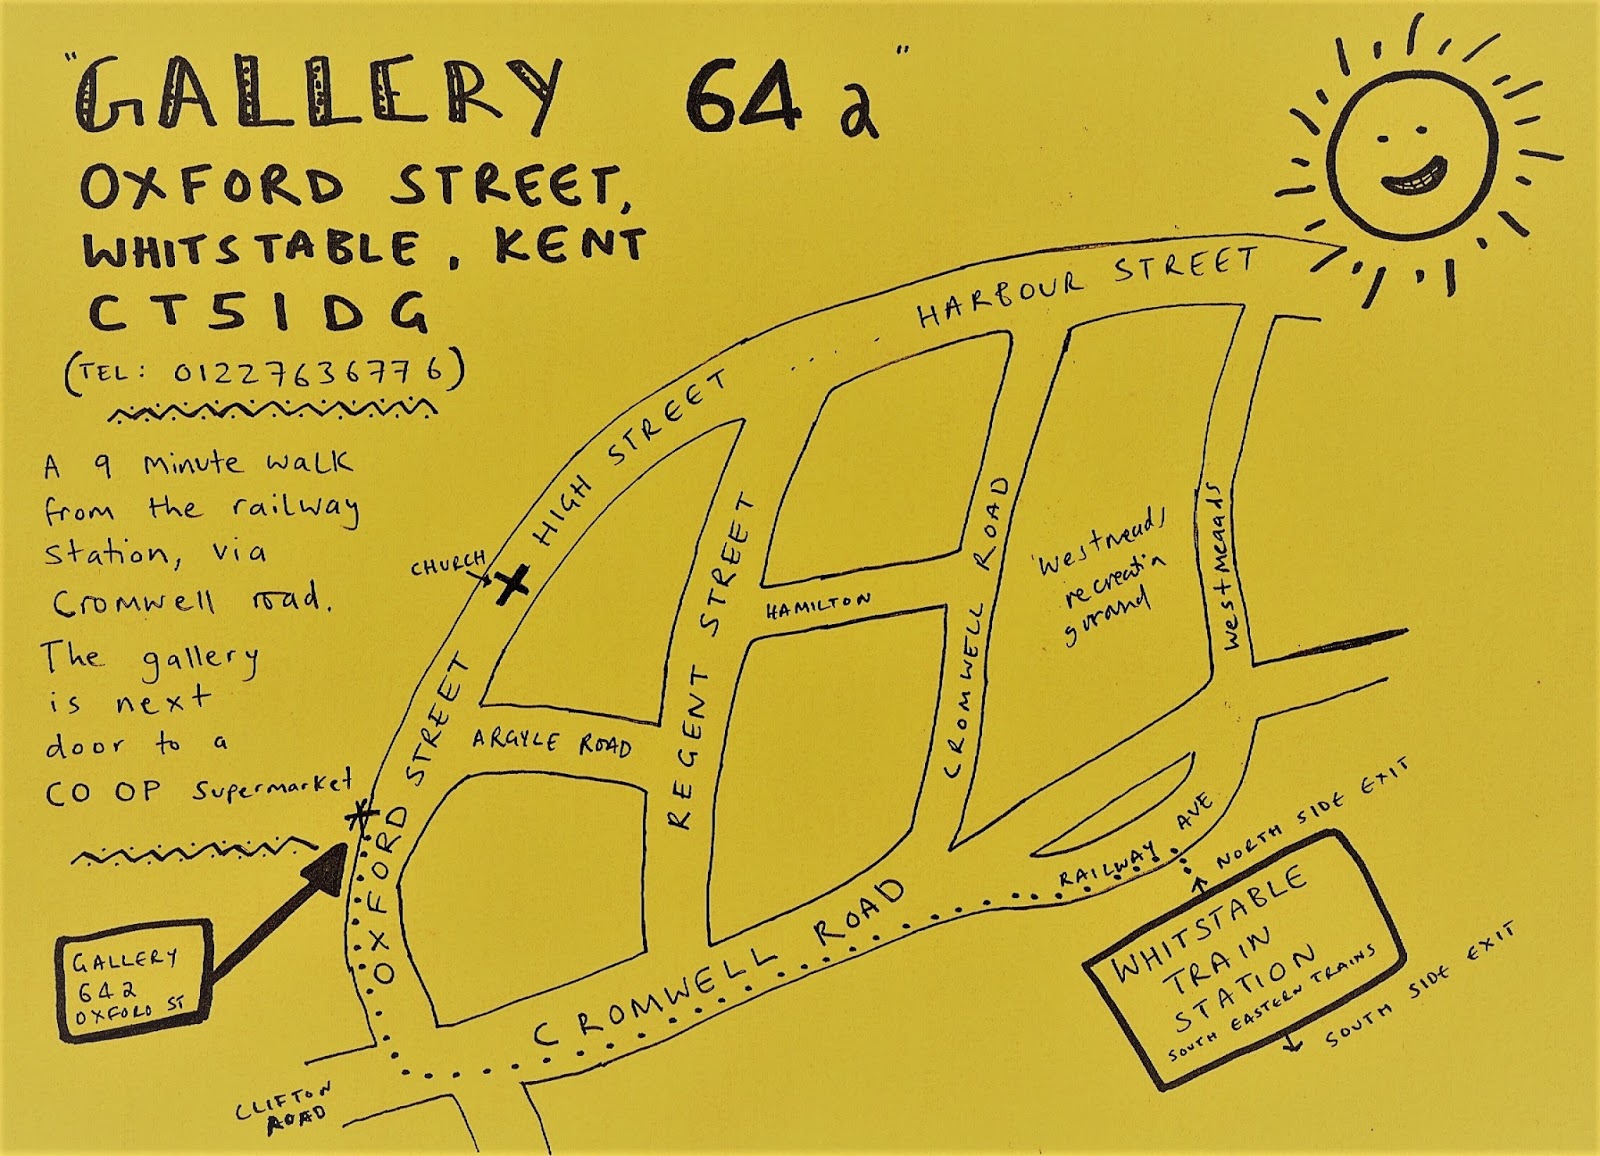 "GALLERY 64a"
OXFORD STREET,
WHITSTABLE, KENT
CT5 1DG
(TEL: 01227636776)
A 9 minute walk
from the railway
station, via
Cromwell road.
The gallery
is next
door to a
CO OP supermarket
GALLERY
64a
OXFORD ST
CLIFTON
ROAD
HARBOUR STREET
HIGH STREET
CHURCH
OXFORD STREET
OXFORD
ARGYLE ROAD
REGENT STREET
HAMILTON
CROMWELL ROAD
'Westmeads
recreatin
ground
Westmeads
CROMWELL ROAD
RAILWAY AVE
NORTH SIDE EXIT
WHITSTABLE
TRAIN
STATION
SOUTH EASTERN TRAINS
SOUTH SIDE EXIT